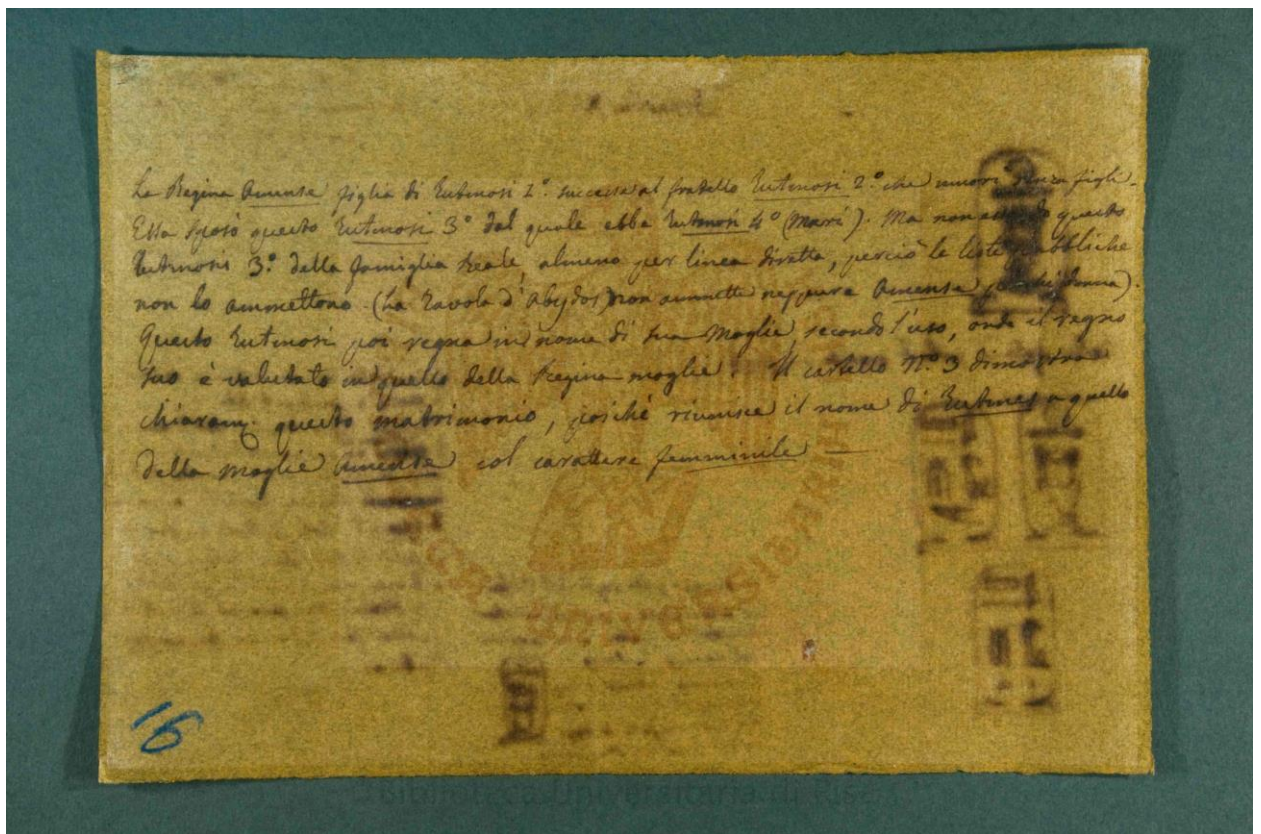 La Regina Amense figlia di Tutmosi 1.º successe al fratello Tutmosi 2.º che muore senza figli.
Essa sposò questo Tutmosi 3.º dal quale ebbe Tutmosi 4.º (Mœri). Ma non essendo questo
Tutmosis 3.º della famiglia Reale, almeno per linea diretta, perciò le liste pubbliche
non lo ammettono. (La Tavola d'Abydos non ammette neppure Amense perchè donna).
Questo Tutmosi poi regna in nome di sua Moglie, secondo l'uso, onde il regno
suo è valutato in quello della Regina moglie. Il cartello Nº 3 dimostra
chiaram. questo matrimonio, poichè riunisce il nome di Tutmes a quello
della moglie Amense col carattere femminile —
16
Biblioteca Universitaria di Pisa